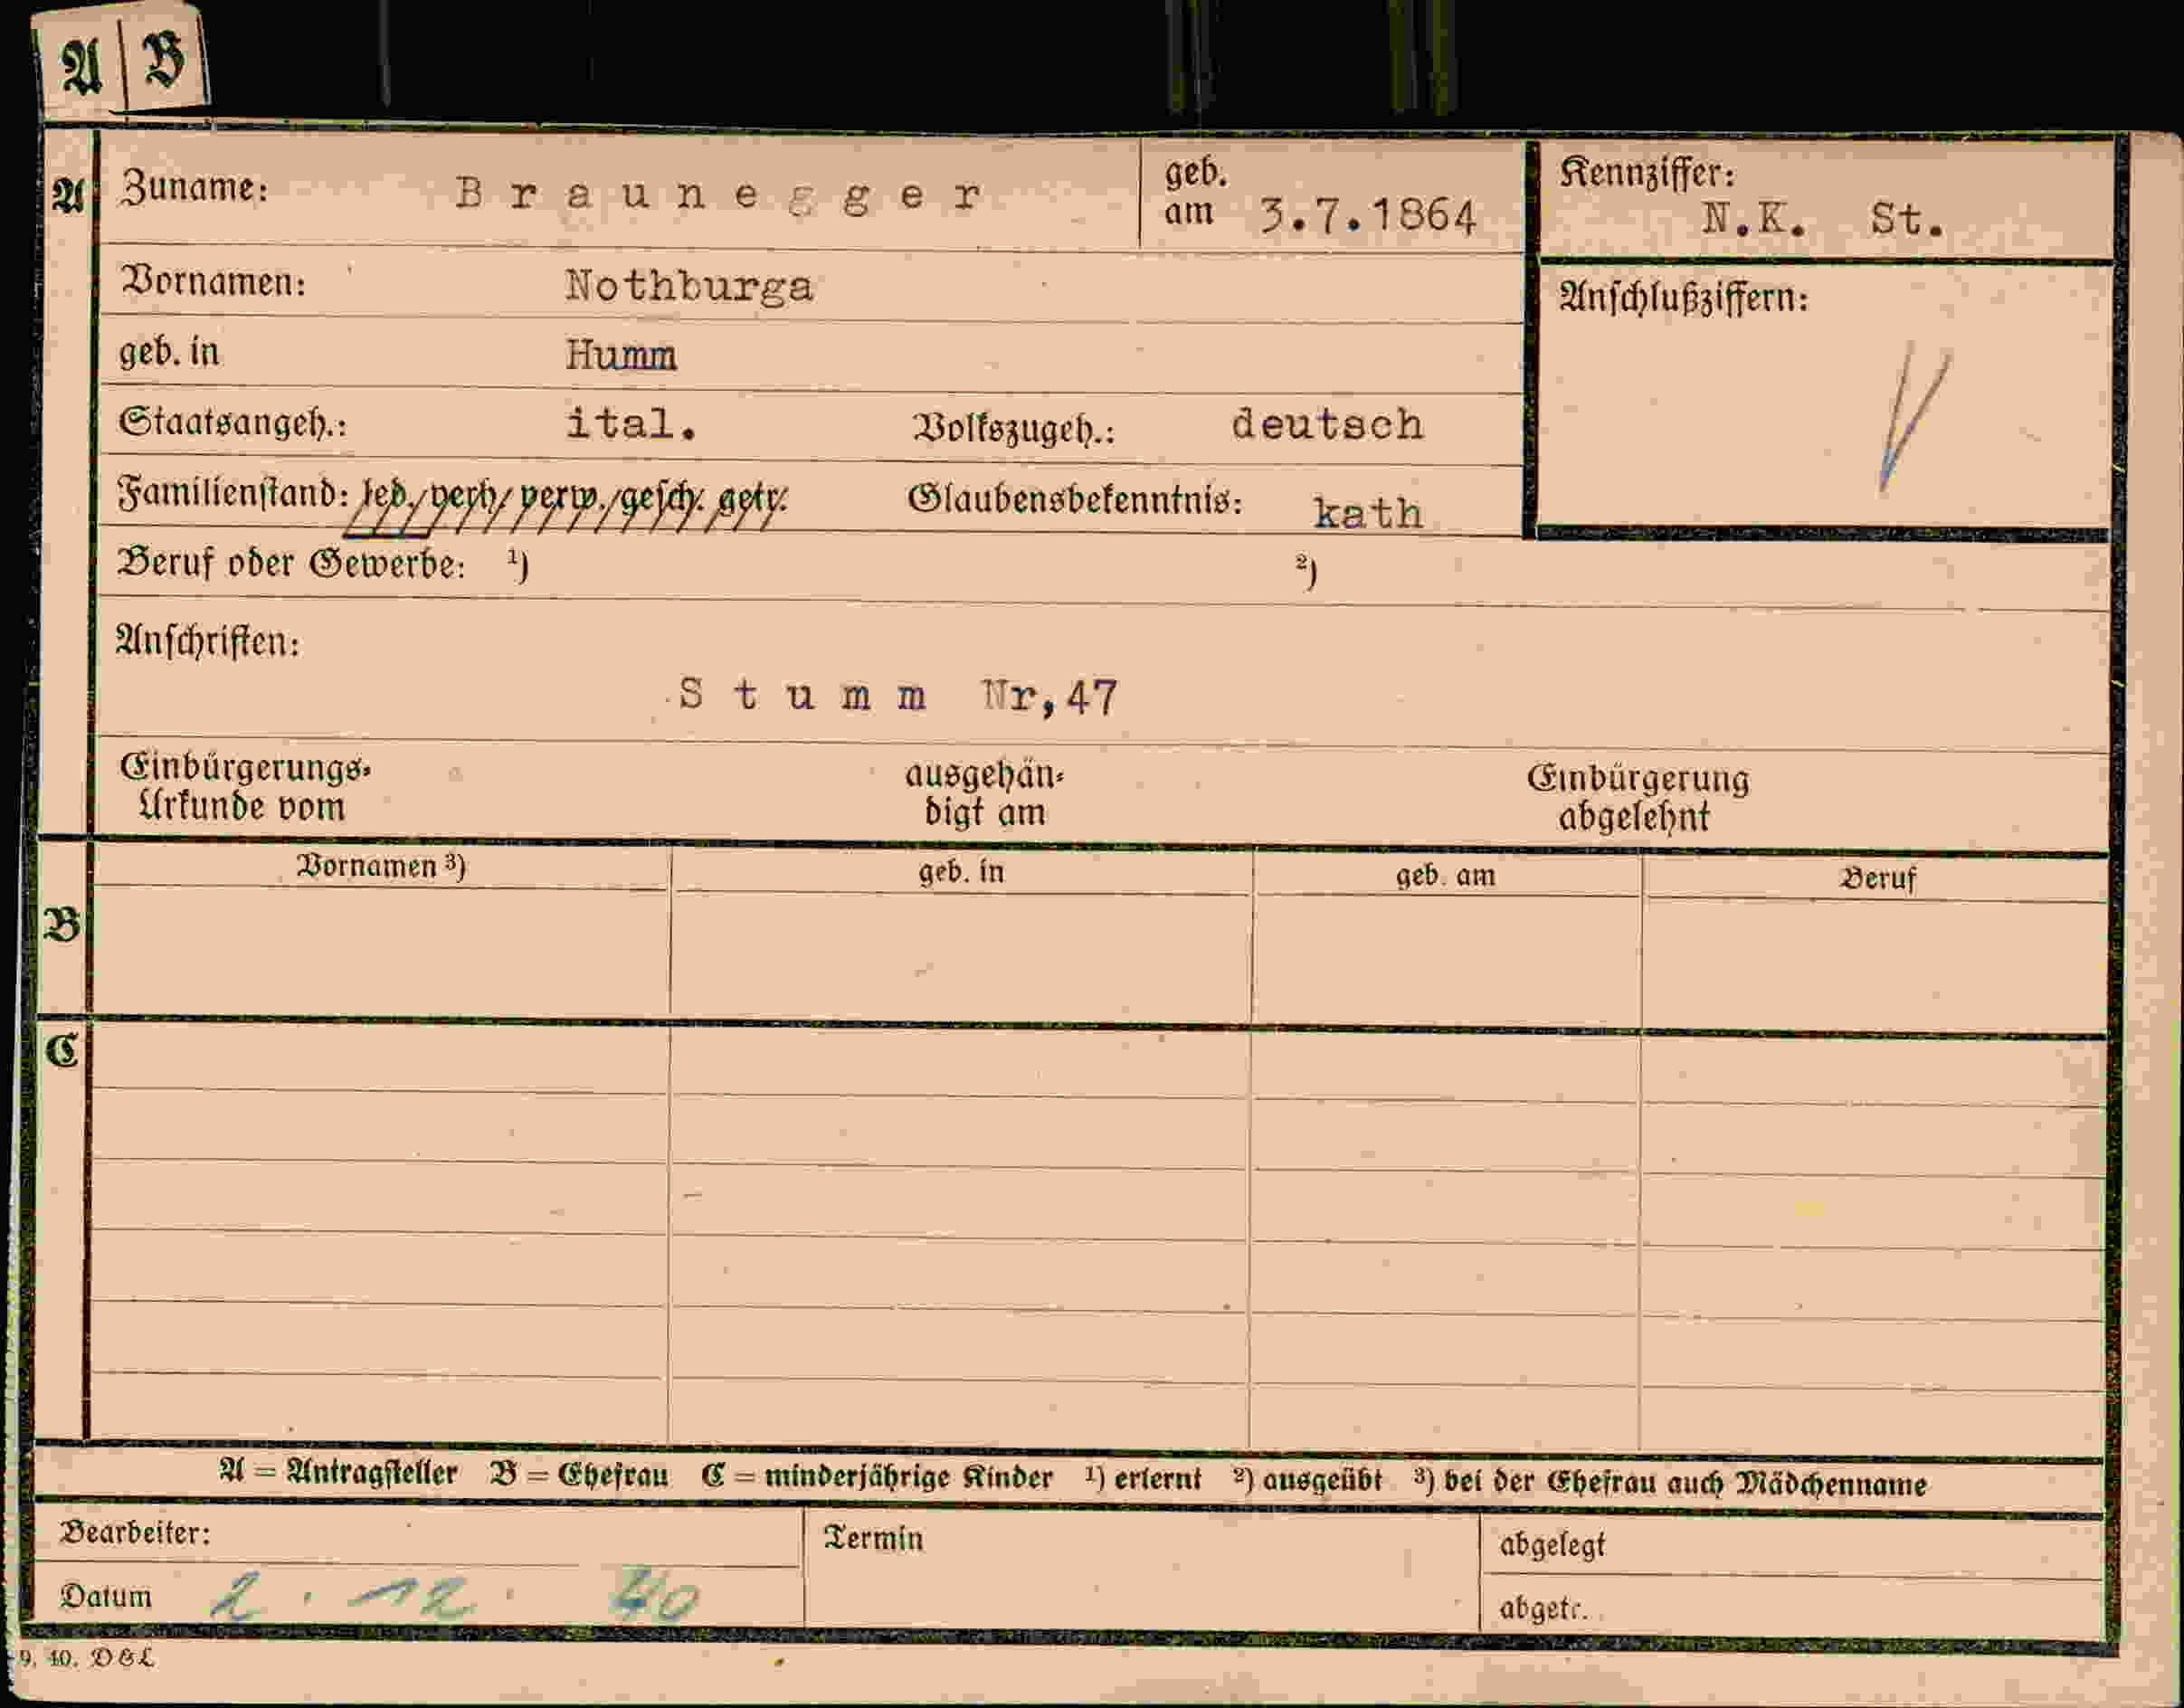 A B
A Zuname: Braunegger geb. am 3.7.1864 Kennziffer: N.K. St.
Vornamen: Nothburga Anschlußziffern:
geb. in Humm
Staatsangeh.: ital. Volkszugeh.: deutsch
Familienstand: led./verh/verw./gesch. getr. Glaubensbekenntnis: kath
Beruf oder Gewerbe: ¹) ²)
Anschriften:
Stumm Nr,47
Einbürgerungs- ausgehän- Einbürgerung
Urkunde vom digt am abgelehnt
Vornamen ³) geb. in geb. am Beruf
B
C
A = Antragsteller B = Ehefrau C = minderjährige Kinder ¹) erlernt ²) ausgeübt ³) bei der Ehefrau auch Mädchenname
Bearbeiter: Termin abgelegt
Datum 2. 12. 40 abgetr.
9. 40. D&L